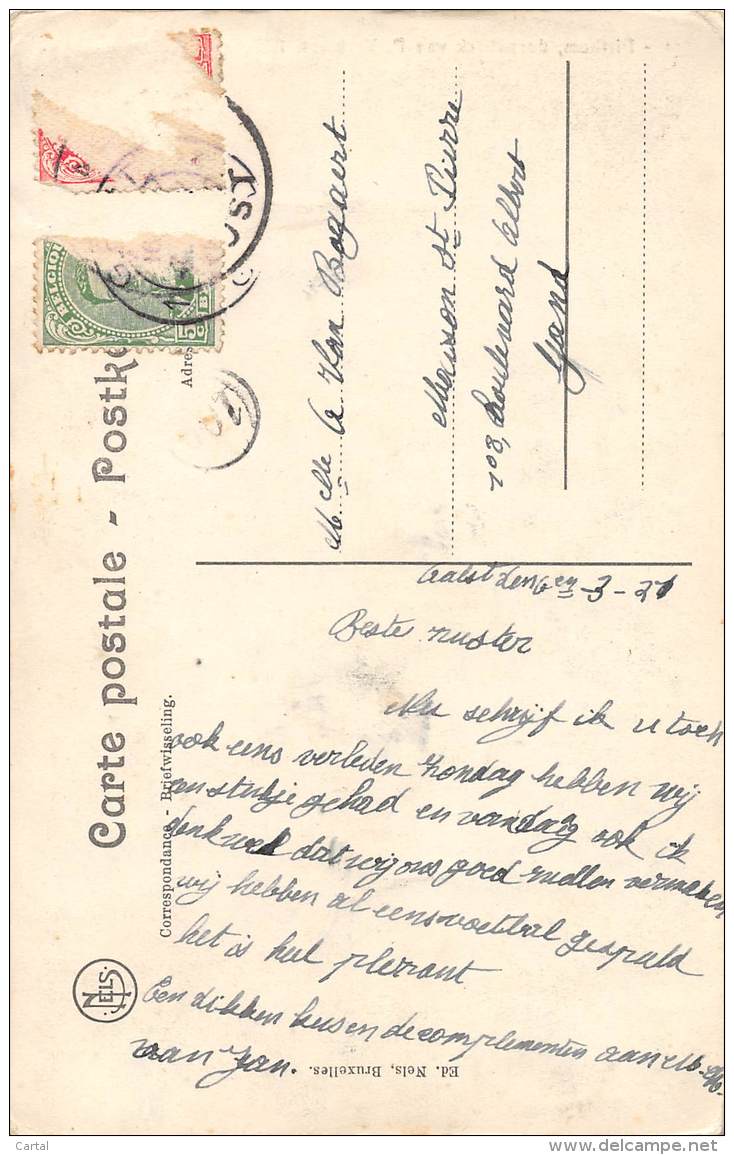 Carte postale - Postk
Correspondance - Briefwisseling.
Adres
BELGIQU
5c B
NELS
Ed. Nels, Bruxelles.
Melle A Van Bogaert
Maison St Pierre
108, Boulevard Albert
Gand
Aalst den 6en -3-21
Beste zuster
Nu schrijf ik u toch
ook eens verleden zondag hebben wij
een stukje gehad en vandaag ook ik
denk wel dat wij ons goed zullen vermaken
wij hebben al eens voetbal gespeeld
het is heel plezant
Een dikken kus en de complementen aan
van Jan.
Cartal
www.delcampe.net